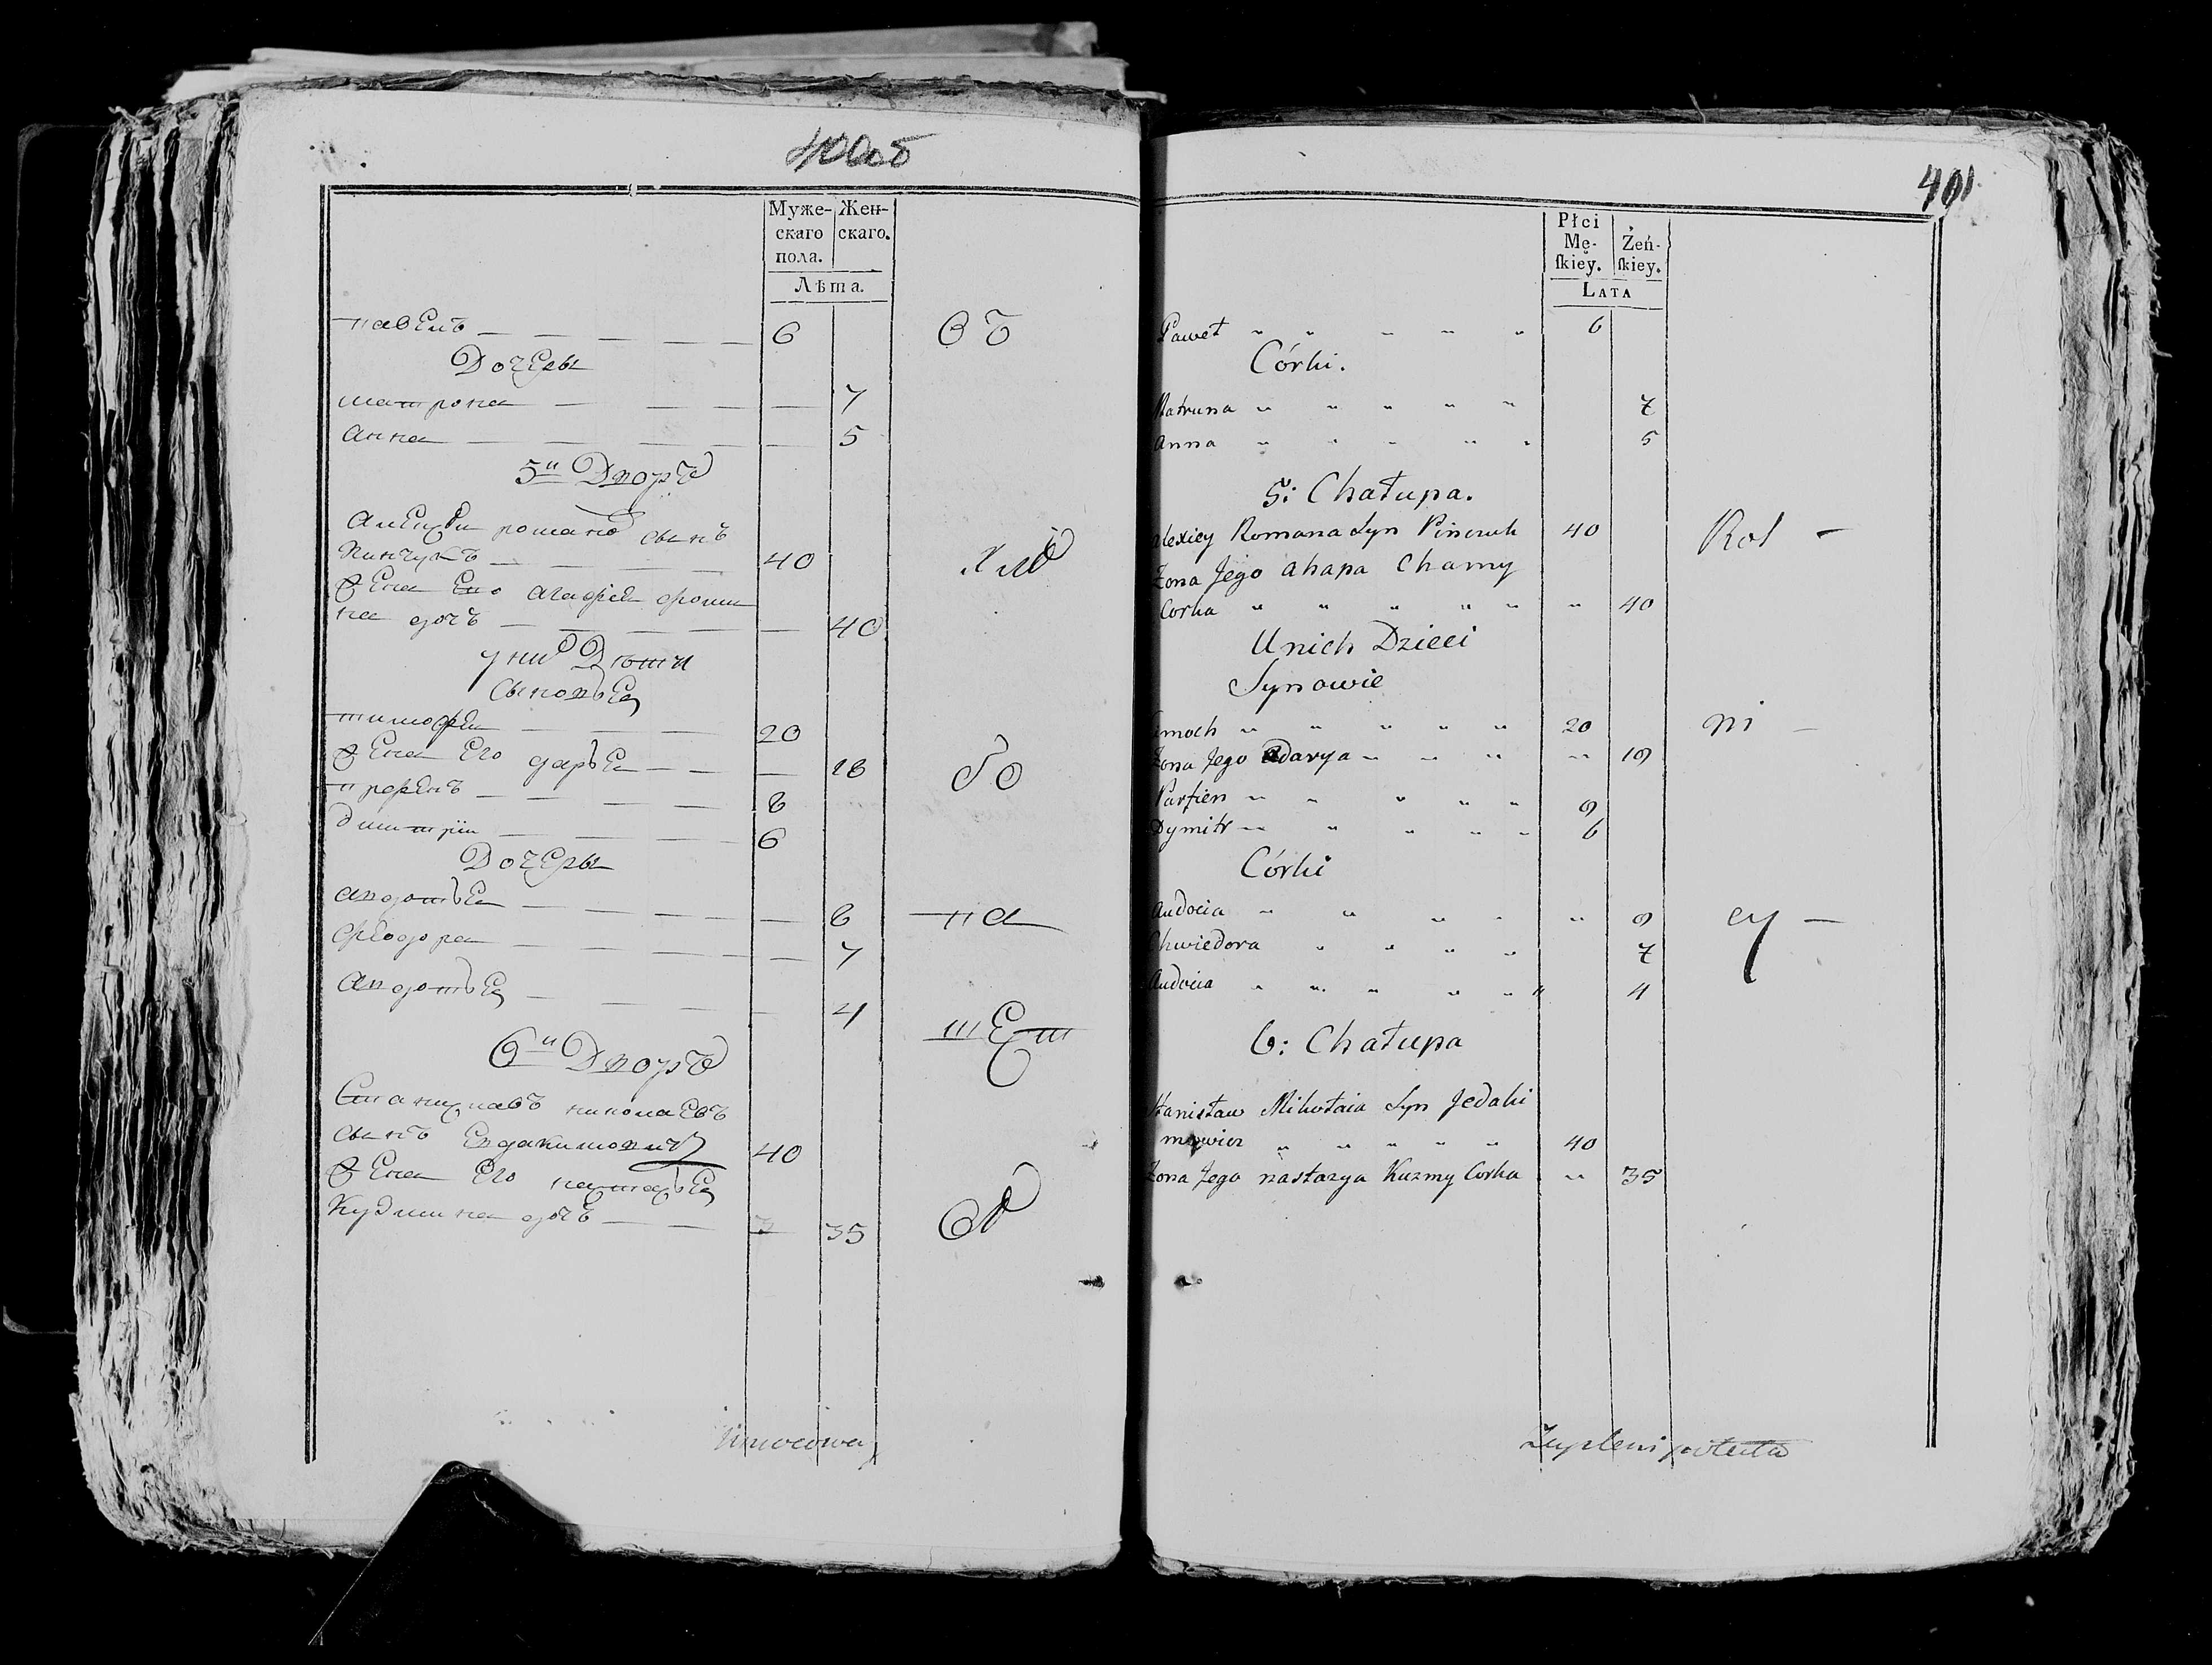 400об
Муже-
скаго
пола.
Жен-
скаго.
Лѣта.
павелъ 6
Дочеры
матрона 7
анна 5
5й Дворъ
алексѣй романо сынъ
Пинчукъ 40
жена его агафия фоми
на дочъ 40
у них Дѣти
сыновья
тимофей 20
жена его дарья 18
прфенъ 8
дмитрiй 6
Дочеры
авдотья 8
феодора 7
авдотья 4
6й Дворъ
Станиславъ николаевъ
сынъ Евдакимович 40
жена его настасья
Кузмина дочъ 35
хлѣ
бо
па
шет
401
Płci
Mę-
skiey.
Żeń-
skiey.
LATA
Paweł 6
Córki.
Matruna 7
Anna 5
5: Chałupa.
Alexiey Romana Syn Pinczuk 40
Żona Jego Ahapa Chamy
Corka 40
Unich Dzieci
Synowie
Żona Jego Darya 19
Parfien 9
Dymitr 6
Córki
Audocia 9
Chwiedora 7
Audocia 4
6: Chałupa
Stanisław Mikołaia Syn Jedaki
mowicz 40
Żona Jego nastazya Kuzmy Corka 35
Rol
ni
cy